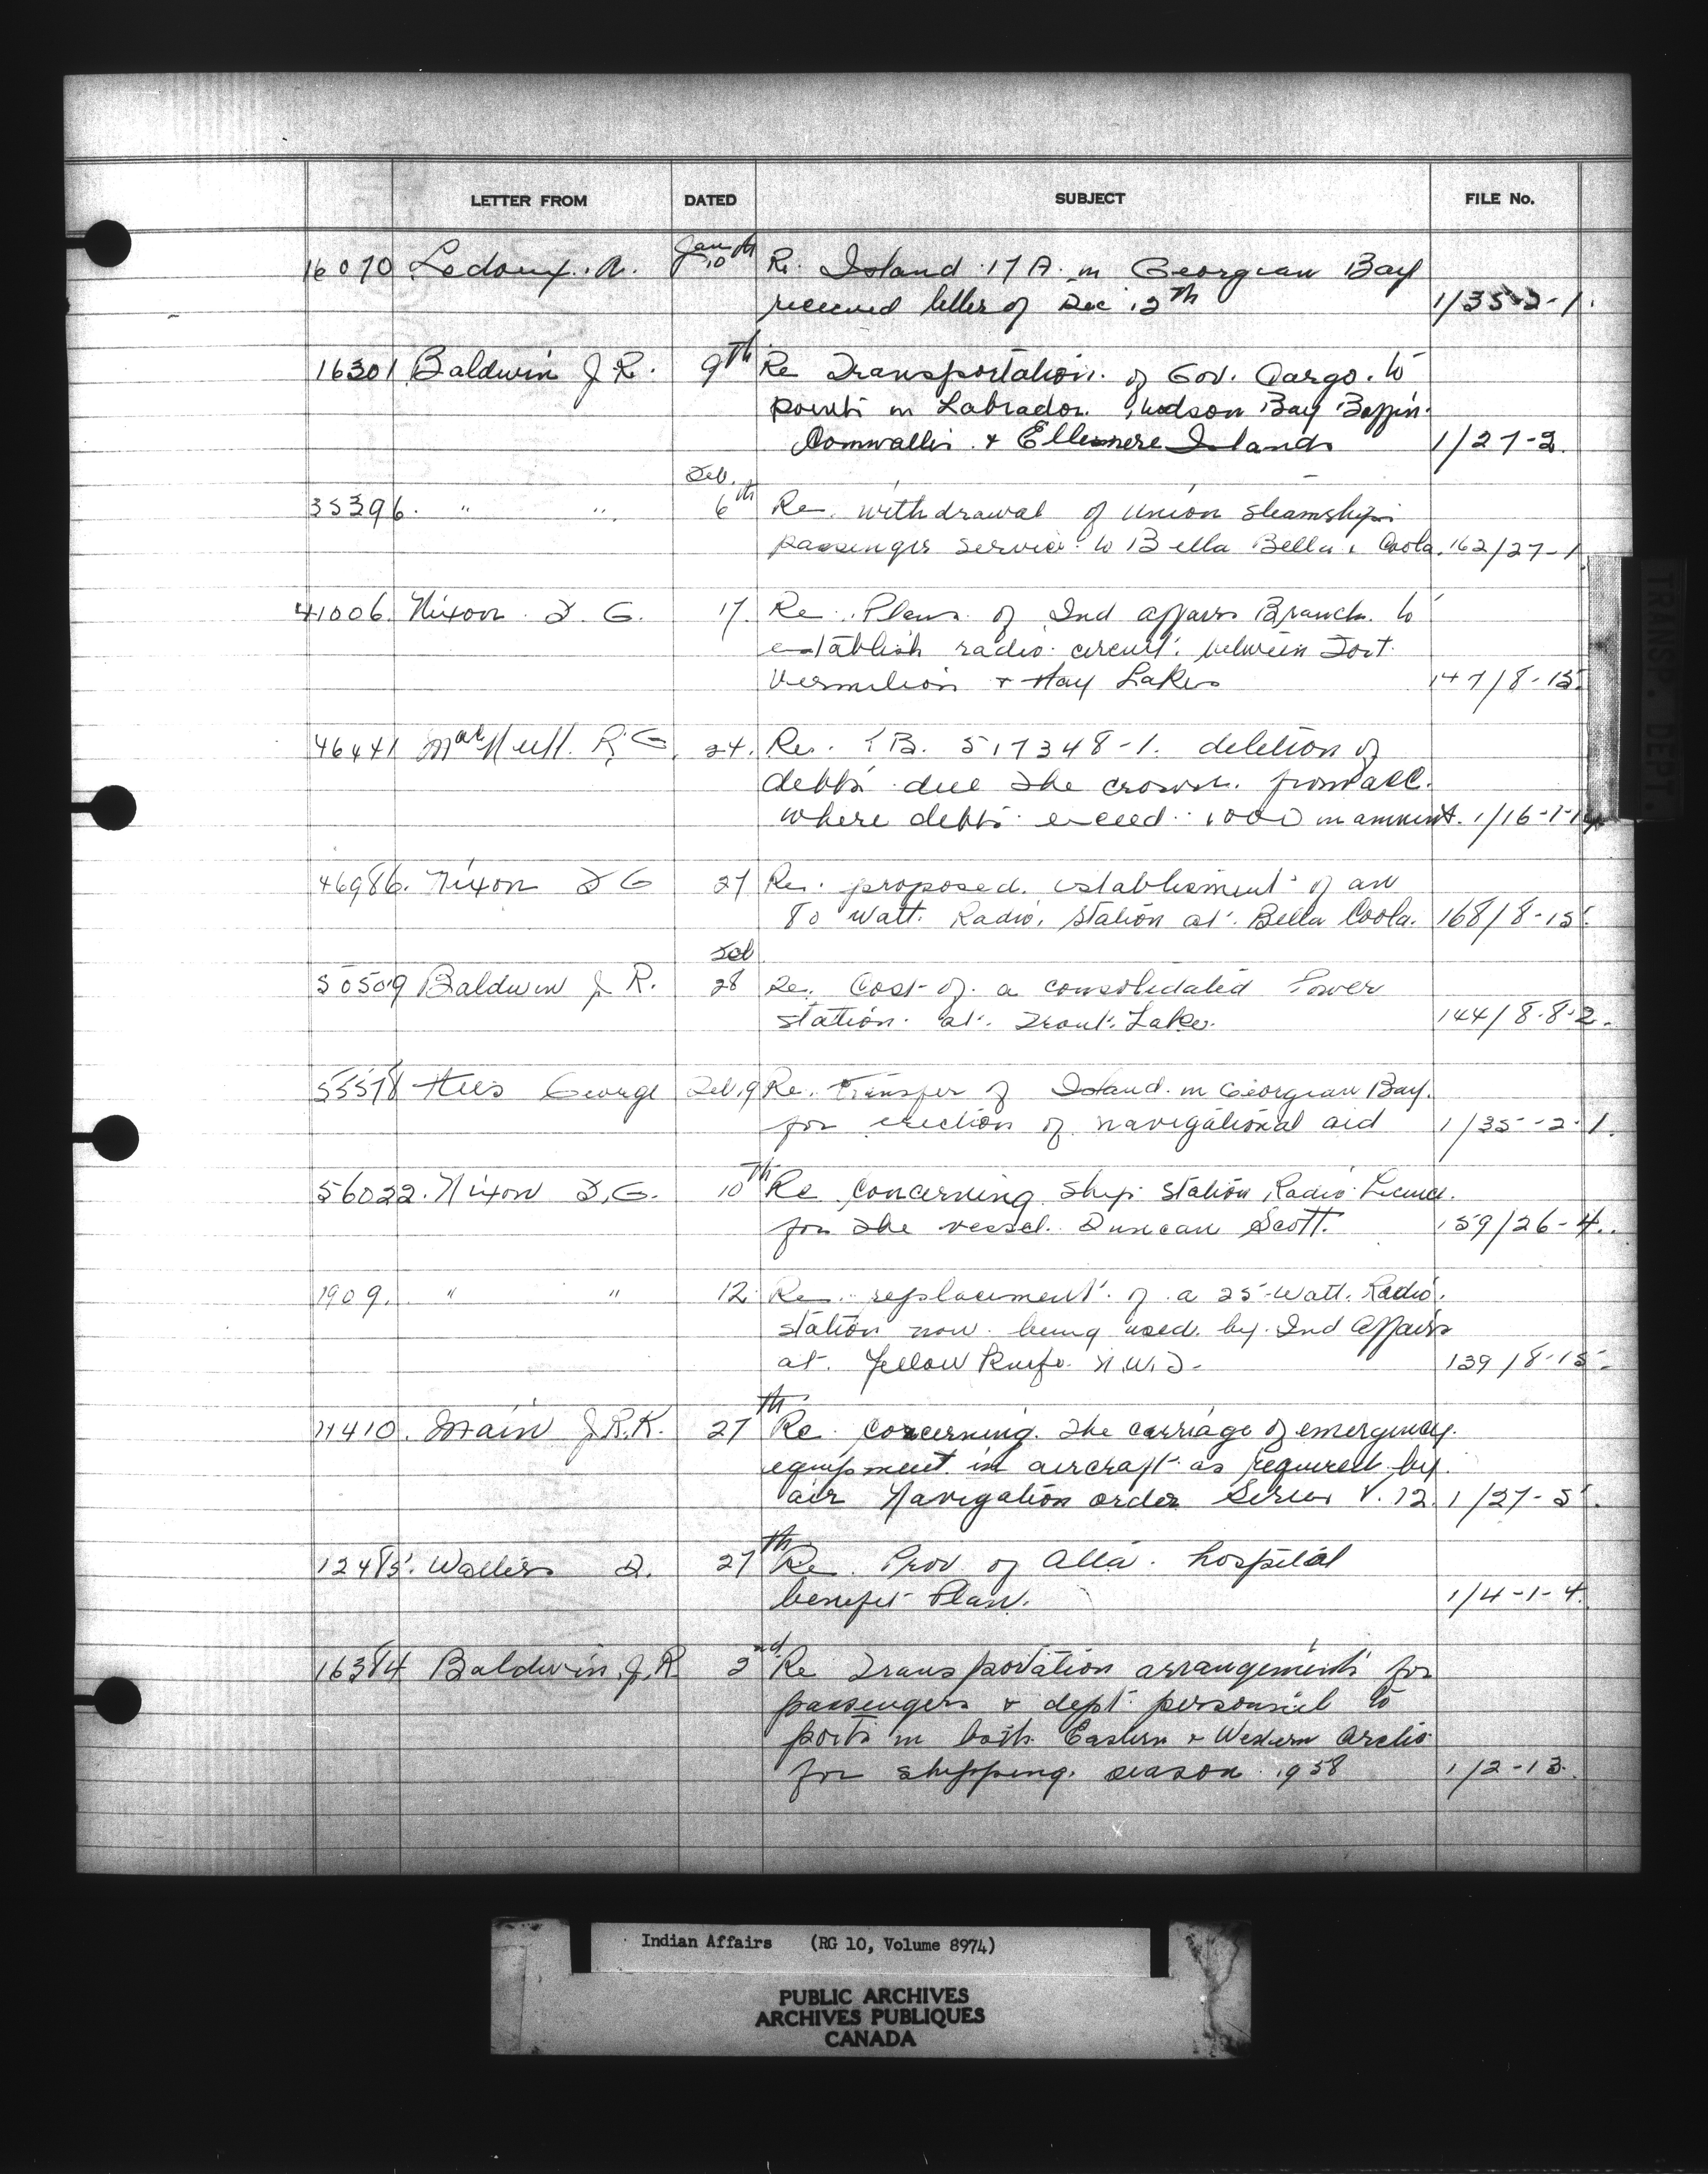 LETTER FROM DATED SUBJECT FILE No.
16070 Ledoux. A. Jan 10th Re. Island 17A. in Georgian Bay
received letter of Dec 12th 1/35-2-1.
16301 Baldwin J R. 9th Re Transportation of Gov. Cargo. to
points in Labrador. Hudson Bay Baffin.
Cornwallis & Ellesmere Islands 1/27-2.
Feb.
35396. " " 6th Re. withdrawal of Union Steamship
passenger service to Bella Bella & Coola. 162/27-1
41006. Nixon F. G. 17. Re. Plans of Ind Affairs Branch to
establish radio circuit between Fort
Vermilion & Hay Lakes 147/8-15.
46441 MacNeill. R. G. 24. Re. T.B. 517348-1. deletion of
debts due the crown. from acc.
where debts exceed 1000 in amount. 1/16-1-14
46986. Nixon F G 27 Re. proposed establisment of an
80 Watt. Radio. Station at Bella Coola. 168/8-15.
Feb
50509 Baldwin J R. 28 Re. Cost of a consolidated Power
station. at. Trout Lake. 144/8-8-2.
55578 Hees George Feb. 9 Re. Transfer of Island in Georgian Bay.
for erection of navigational aid 1/35-2-1.
56022. Nixon F.G. 10th Re concerning Ship Station Radio Licence.
for the vessel. Duncan Scott. 159/26-4.
1909. " " 12. Re. replacement of a 25 Watt. Radio.
station now being used by Ind Affairs
at. Yellow Knife N.W.T. 139/8-15.
11410. Main J.R.K. 27th Re. Concerning the carriage of emergency.
equipment in aircraft as required by
air Navigation order Series V. 12. 1/27-5.
12485. Walters 27th Re. Prov of Alta. hospital
benefit Plan. 1/4-1-4.
16384 Baldwin, J.R 2nd Re Transportation arrangements for
passengers & dept personnel to
ports in both Eastern & Western Arctic
for shipping season 1958 1/2-13.
TRANSP. DEPT.
Indian Affairs (RG 10, Volume 8974)
PUBLIC ARCHIVES
ARCHIVES PUBLIQUES
CANADA